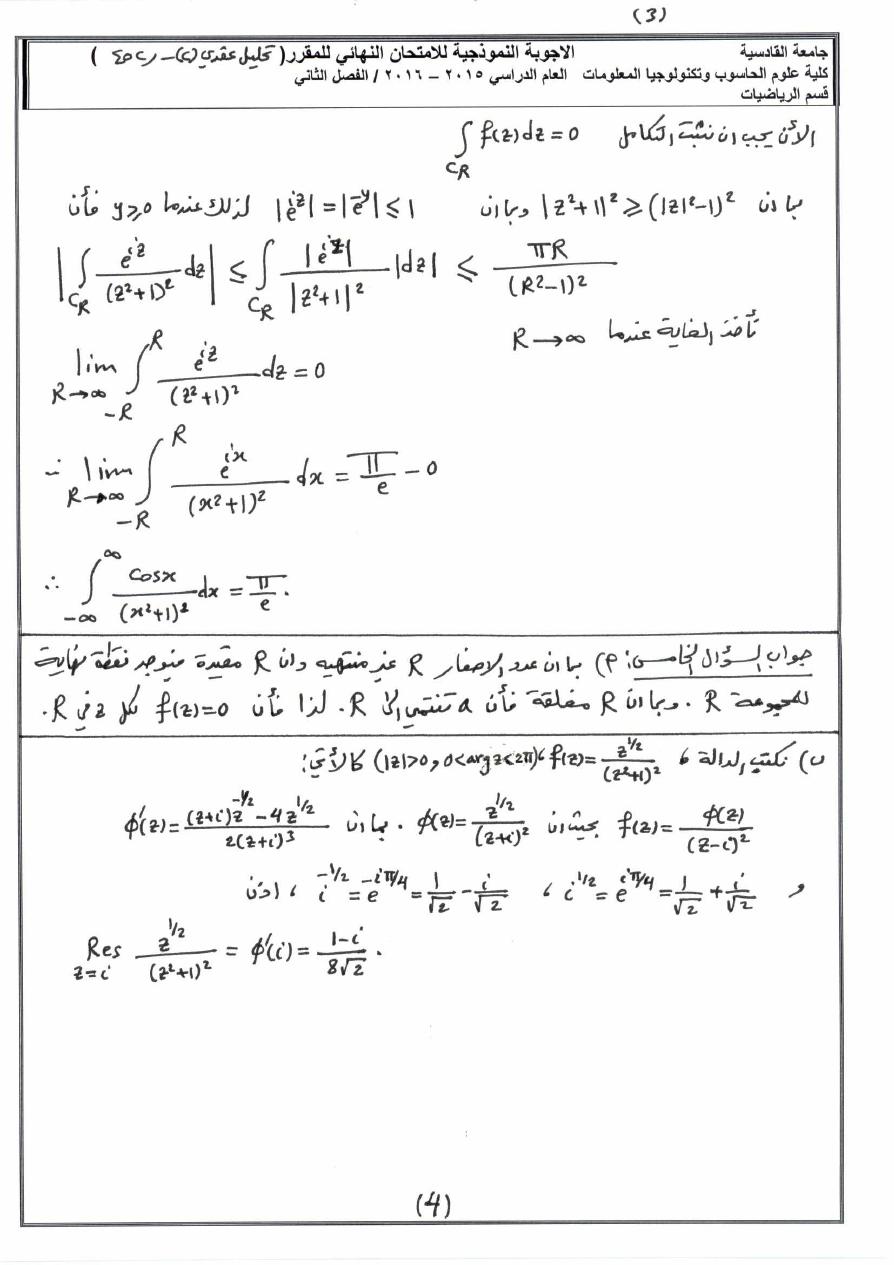 (3)
جامعة القادسية الاجوبة النموذجية للامتحان النهائي للمقرر( تحليل عقدي (٢) – )
كلية علوم الحاسوب وتكنولوجيا المعلومات العام الدراسي ٢٠١٥ – ٢٠١٦ / الفصل الثاني
قسم الرياضيات
الأن يجب ان نثبت التكامل ∫_{C_R} f(z)dz = 0
بما ان |z²+1|² ≥ (|z|²-1)² وبما ان |e^{iz}| = |e^{-y}| ≤ 1 لذلك عندما y≥0 فأن
|∫_{C_R} e^{iz}/(z²+1)² dz| ≤ ∫_{C_R} |e^{iz}|/|z²+1|² |dz| ≤ πR/(R²-1)²
تأخذ الغاية عندما R→∞
lim_{R→∞} ∫_{-R}^{R} e^{iz}/(z²+1)² dz = 0
∴ lim_{R→∞} ∫_{-R}^{R} e^{ix}/(x²+1)² dx = π/e - 0
∴ ∫_{-∞}^{∞} cosx/(x²+1)² dx = π/e.
جواب السؤال الخامس: ٩) بما ان عدد الاصفار R غير منتهيه وان R مقيدة فتوجد نقطة نهاية
للمجموعة R . وبما ان R مغلقة فأن a تنتمي الى R. لذا فأن f(z)=0 لكل z في R.
ب) نكتب الدالة f(z) = z^{1/2}/(z²+1)² ، (|z|>0, 0<arg z<2π) كالأتي:
f(z) = φ(z)/(z-i)² بحيث ان φ(z) = z^{1/2}/(z+i)² . بما ان φ'(z) = ((z+i)z^{-1/2} - 4z^{1/2})/(2(z+i)³)
و i^{1/2} = e^{iπ/4} = 1/√2 + i/√2 ، i^{-1/2} = e^{-iπ/4} = 1/√2 - i/√2 ، اذن
Res_{z=i} z^{1/2}/(z²+1)² = φ'(i) = (1-i)/(8√2) .
(4)